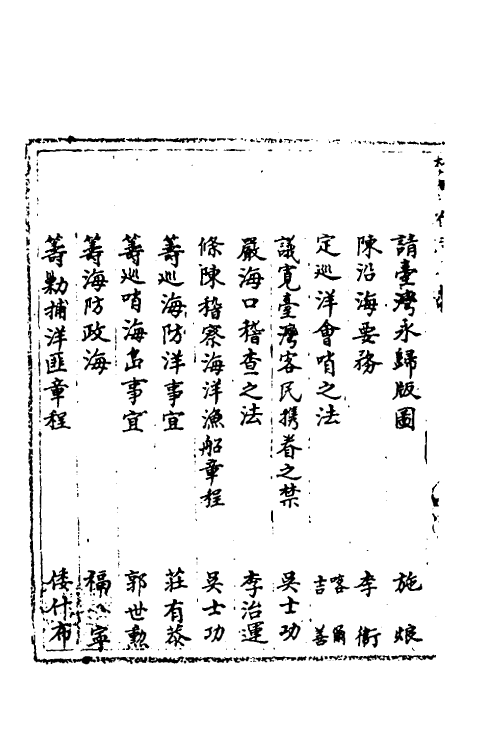 請臺灣永歸版圖 施烺
陳沿海要務 李衛
定巡洋會哨之法 喀爾吉善
議寬臺灣客民携眷之禁 吳士功
嚴海口稽查之法 李治運
條陳稽察海洋漁船章程 吳士功
籌巡海防洋事宜 莊有恭
籌巡哨海島事宜 郭世勲
籌海防政海 福寧
籌勦捕洋匪章程 倭什布